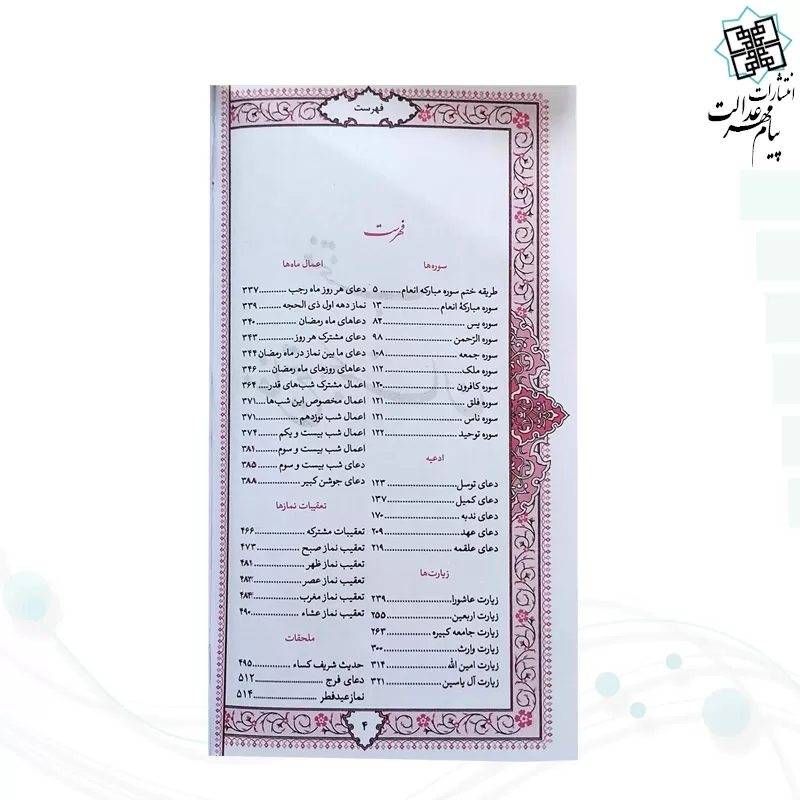 انتشارات
پیام مهر عدالت
فهرست
فهرست
سوره‌ها
طریقه ختم سوره مبارکه انعام........ ۵
سوره مبارکهٔ انعام........................ ۱۳
سوره یس ................................ ۸۲
سوره الرّحمن ............................ ۹۸
سوره جمعه ............................ ۱۰۸
سوره ملک............................... ۱۱۲
سوره کافرون ........................... ۱۲۰
سوره فلق ............................... ۱۲۱
سوره ناس ............................... ۱۲۱
سوره توحید ............................. ۱۲۲
ادعیه
دعای توسل............................. ۱۲۳
دعای کمیل ............................. ۱۳۷
دعای ندبه .............................. ۱۷۰
دعای عهد .............................. ۲۰۹
دعای علقمه ............................ ۲۱۹
زیارت‌ها
زیارت عاشورا........................... ۲۳۹
زیارت اربعین............................ ۲۵۵
زیارت جامعه کبیره ..................... ۲۶۳
زیارت وارث ............................. ۳۰۰
زیارت امین الله ......................... ۳۱۴
زیارت آل یاسین ........................ ۳۲۱
اعمال ماه‌ها
دعای هر روز ماه رجب ........... ۳۳۷
نماز دهه اول ذی الحجه ......... ۳۳۹
دعاهای ماه رمضان ............... ۳۴۰
دعای مشترک هر روز............. ۳۴۳
دعای ما بین نماز در ماه رمضان ۳۴۴
دعاهای روزهای ماه رمضان ..... ۳۴۶
اعمال مشترک شب‌های قدر.... ۳۶۴
اعمال مخصوص این شب‌ها.... ۳۷۱
اعمال شب نوزدهم ............... ۳۷۱
اعمال شب بیست و یکم ........ ۳۷۴
اعمال شب بیست و سوم ....... ۳۸۱
دعای شب بیست و سوم ........ ۳۸۵
دعای جوشن کبیر ................ ۳۸۸
تعقیبات نمازها
تعقیبات مشترکه .................. ۴۶۶
تعقیب نماز صبح .................. ۴۷۳
تعقیب نماز ظهر ................... ۴۸۱
تعقیب نماز عصر................... ۴۸۳
تعقیب نماز مغرب.................. ۴۸۴
تعقیب نماز عشاء .................. ۴۹۰
ملحقات
حدیث شریف کساء............... ۴۹۵
دعای فرج .......................... ۵۱۲
نماز عید فطر ....................... ۵۱۴
۴